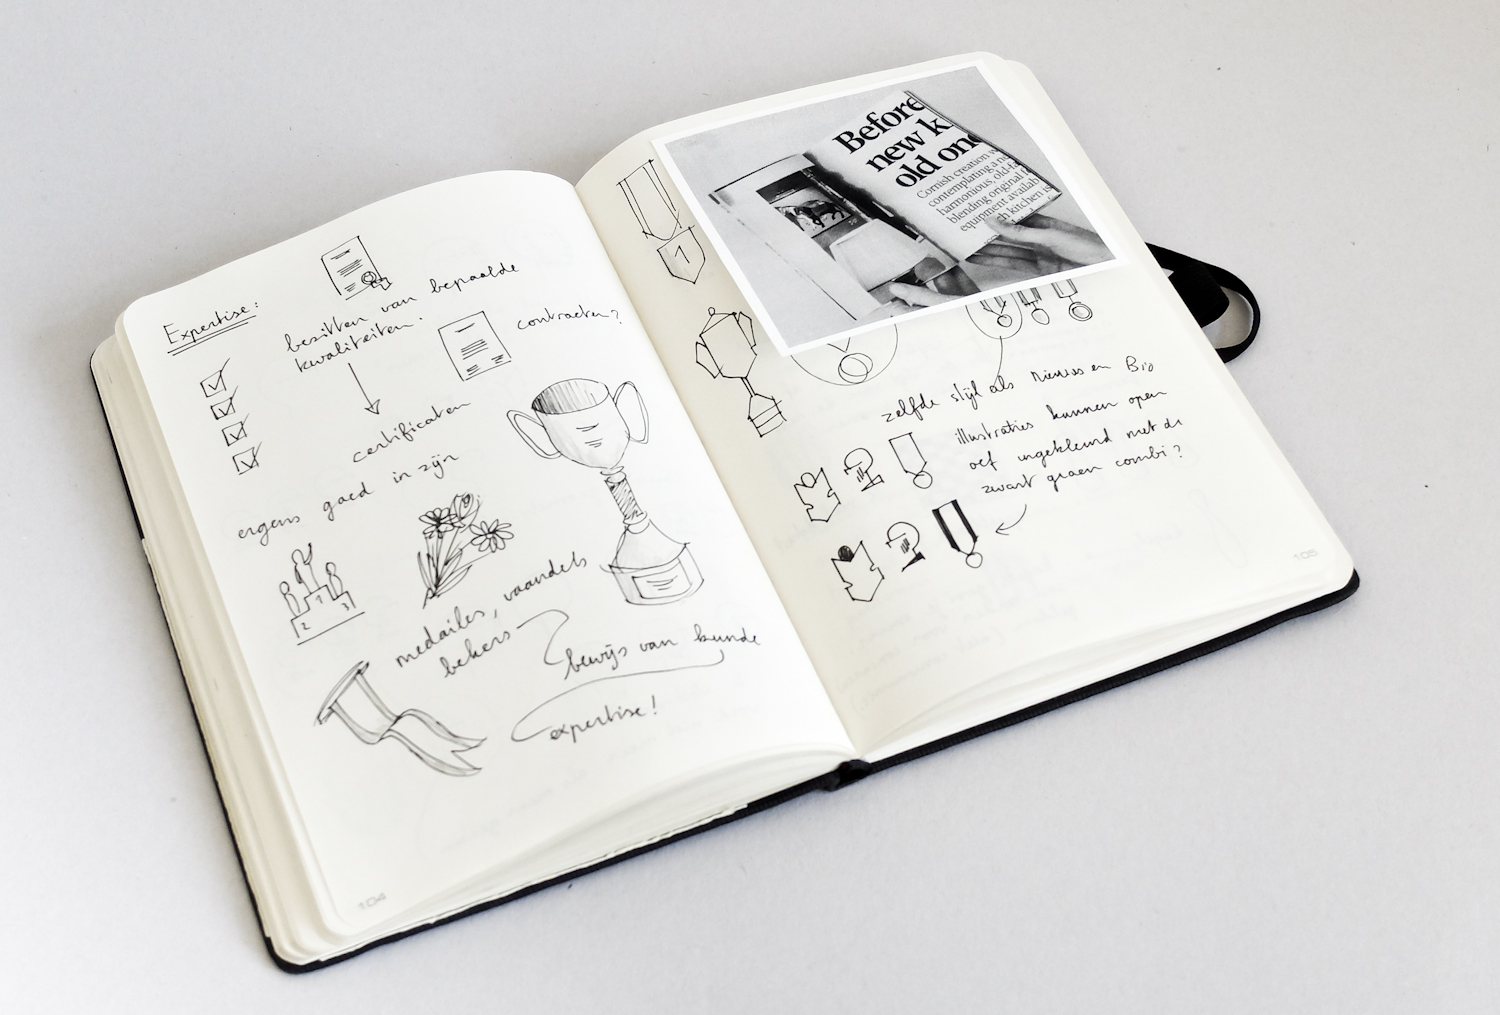 Expertise:
bezitten van bepaalde
kwaliteiten.
contracten?
certificaten
ergens goed in zijn
1
2
3
medailes, vaandels
bekers
bewijs van kunde
expertise!
104
1
Before
new k
old one
Cornish creation w
contemplating a ne
harmonious old-fa
blending original f
equipment availab
kitchen is
zelfde stijl als nieuws en Bio
illustraties kunnen open
oef ingekleurd met de
zwart groen combi?
105